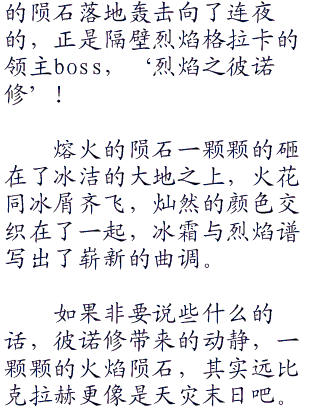 的陨石落地轰击向了连夜
的，正是隔壁烈焰格拉卡的
领主boss，‘烈焰之彼诺
修’！
熔火的陨石一颗颗的砸
在了冰洁的大地之上，火花
同冰屑齐飞，灿然的颜色交
织在了一起，冰霜与烈焰谱
写出了崭新的曲调。
如果非要说些什么的
话，彼诺修带来的动静，一
颗颗的火焰陨石，其实远比
克拉赫更像是天灾末日吧。